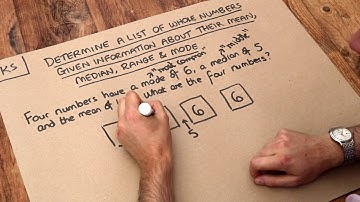 KS
DETERMINE A LIST OF WHOLE NUMBERS
GIVEN INFORMATION ABOUT THEIR MEAN,
MEDIAN, RANGE & MODE
"most common" "middle"
Four numbers have a mode of 6, a median of 5
and the mean of what are the four numbers?
6 6
5